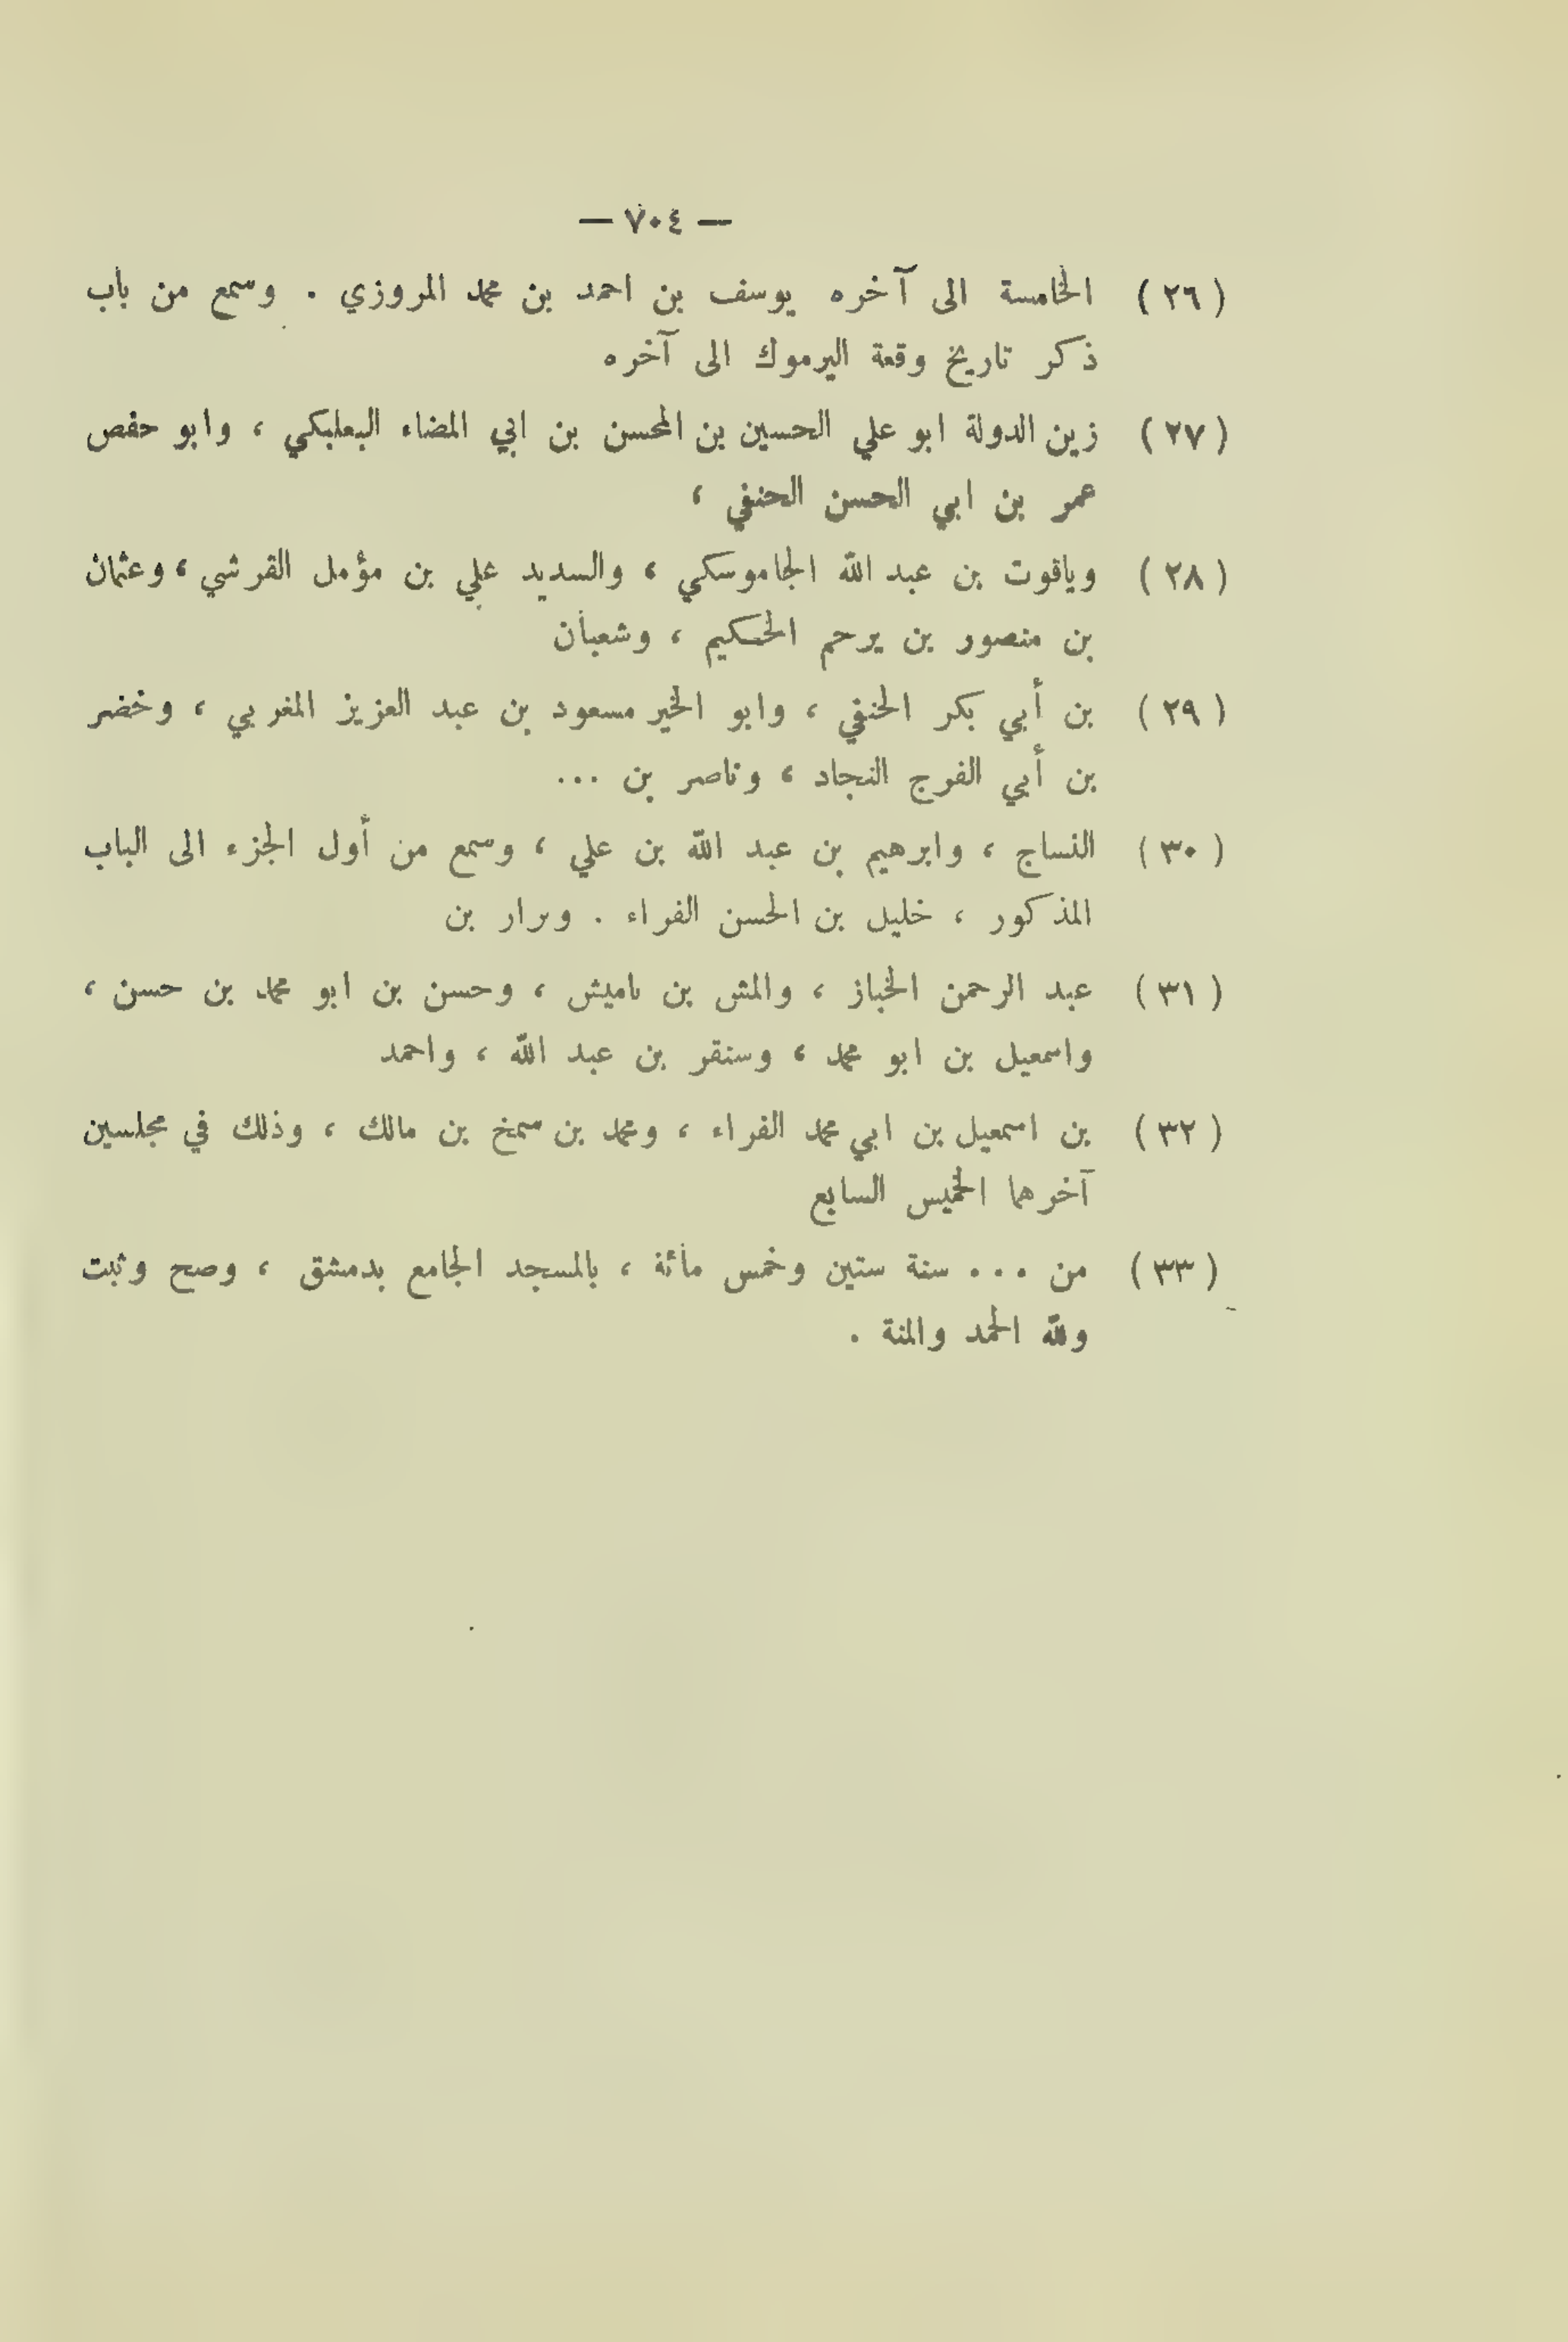 — ٧٠٤ —
(٢٦) الخامسة الى آخره يوسف بن احمد بن محمد المروزي . وسمع من باب
ذكر تاريخ وقعة اليرموك الى آخره
(٢٧) زين الدولة ابو علي الحسين بن المحسن بن ابي المضاء البعلبكي ، وابو حفص
عمر بن ابي الحسن الحنفي ،
(٢٨) وياقوت بن عبد الله الجاموسكي ، والسديد علي بن مؤمل القرشي ، وعثمان
بن منصور بن يرحم الحكيم ، وشعبان
(٢٩) بن أبي بكر الحنفي ، وابو الخير مسعود بن عبد العزيز المغربي ، وخضر
بن أبي الفرج النجاد ، وناصر بن ...
(٣٠) النساج ، وابرهيم بن عبد الله بن علي ، وسمع من أول الجزء الى الباب
المذكور ، خليل بن الحسن الفراء . وىرار بن
(٣١) عبد الرحمن الخباز ، والمش بن ىاميش ، وحسن بن ابو محمد بن حسن ،
واسمعيل بن ابو محمد ، وسنقر بن عبد الله ، واحمد
(٣٢) بن اسمعيل بن ابي محمد الفراء ، ومحمد بن سمخ بن مالك ، وذلك في مجلسين
آخرهما الخميس السابع
(٣٣) من ... سنة ستين وخمس مائة ، بالمسجد الجامع بدمشق ، وصح وثبت
ولله الحمد والمنة .